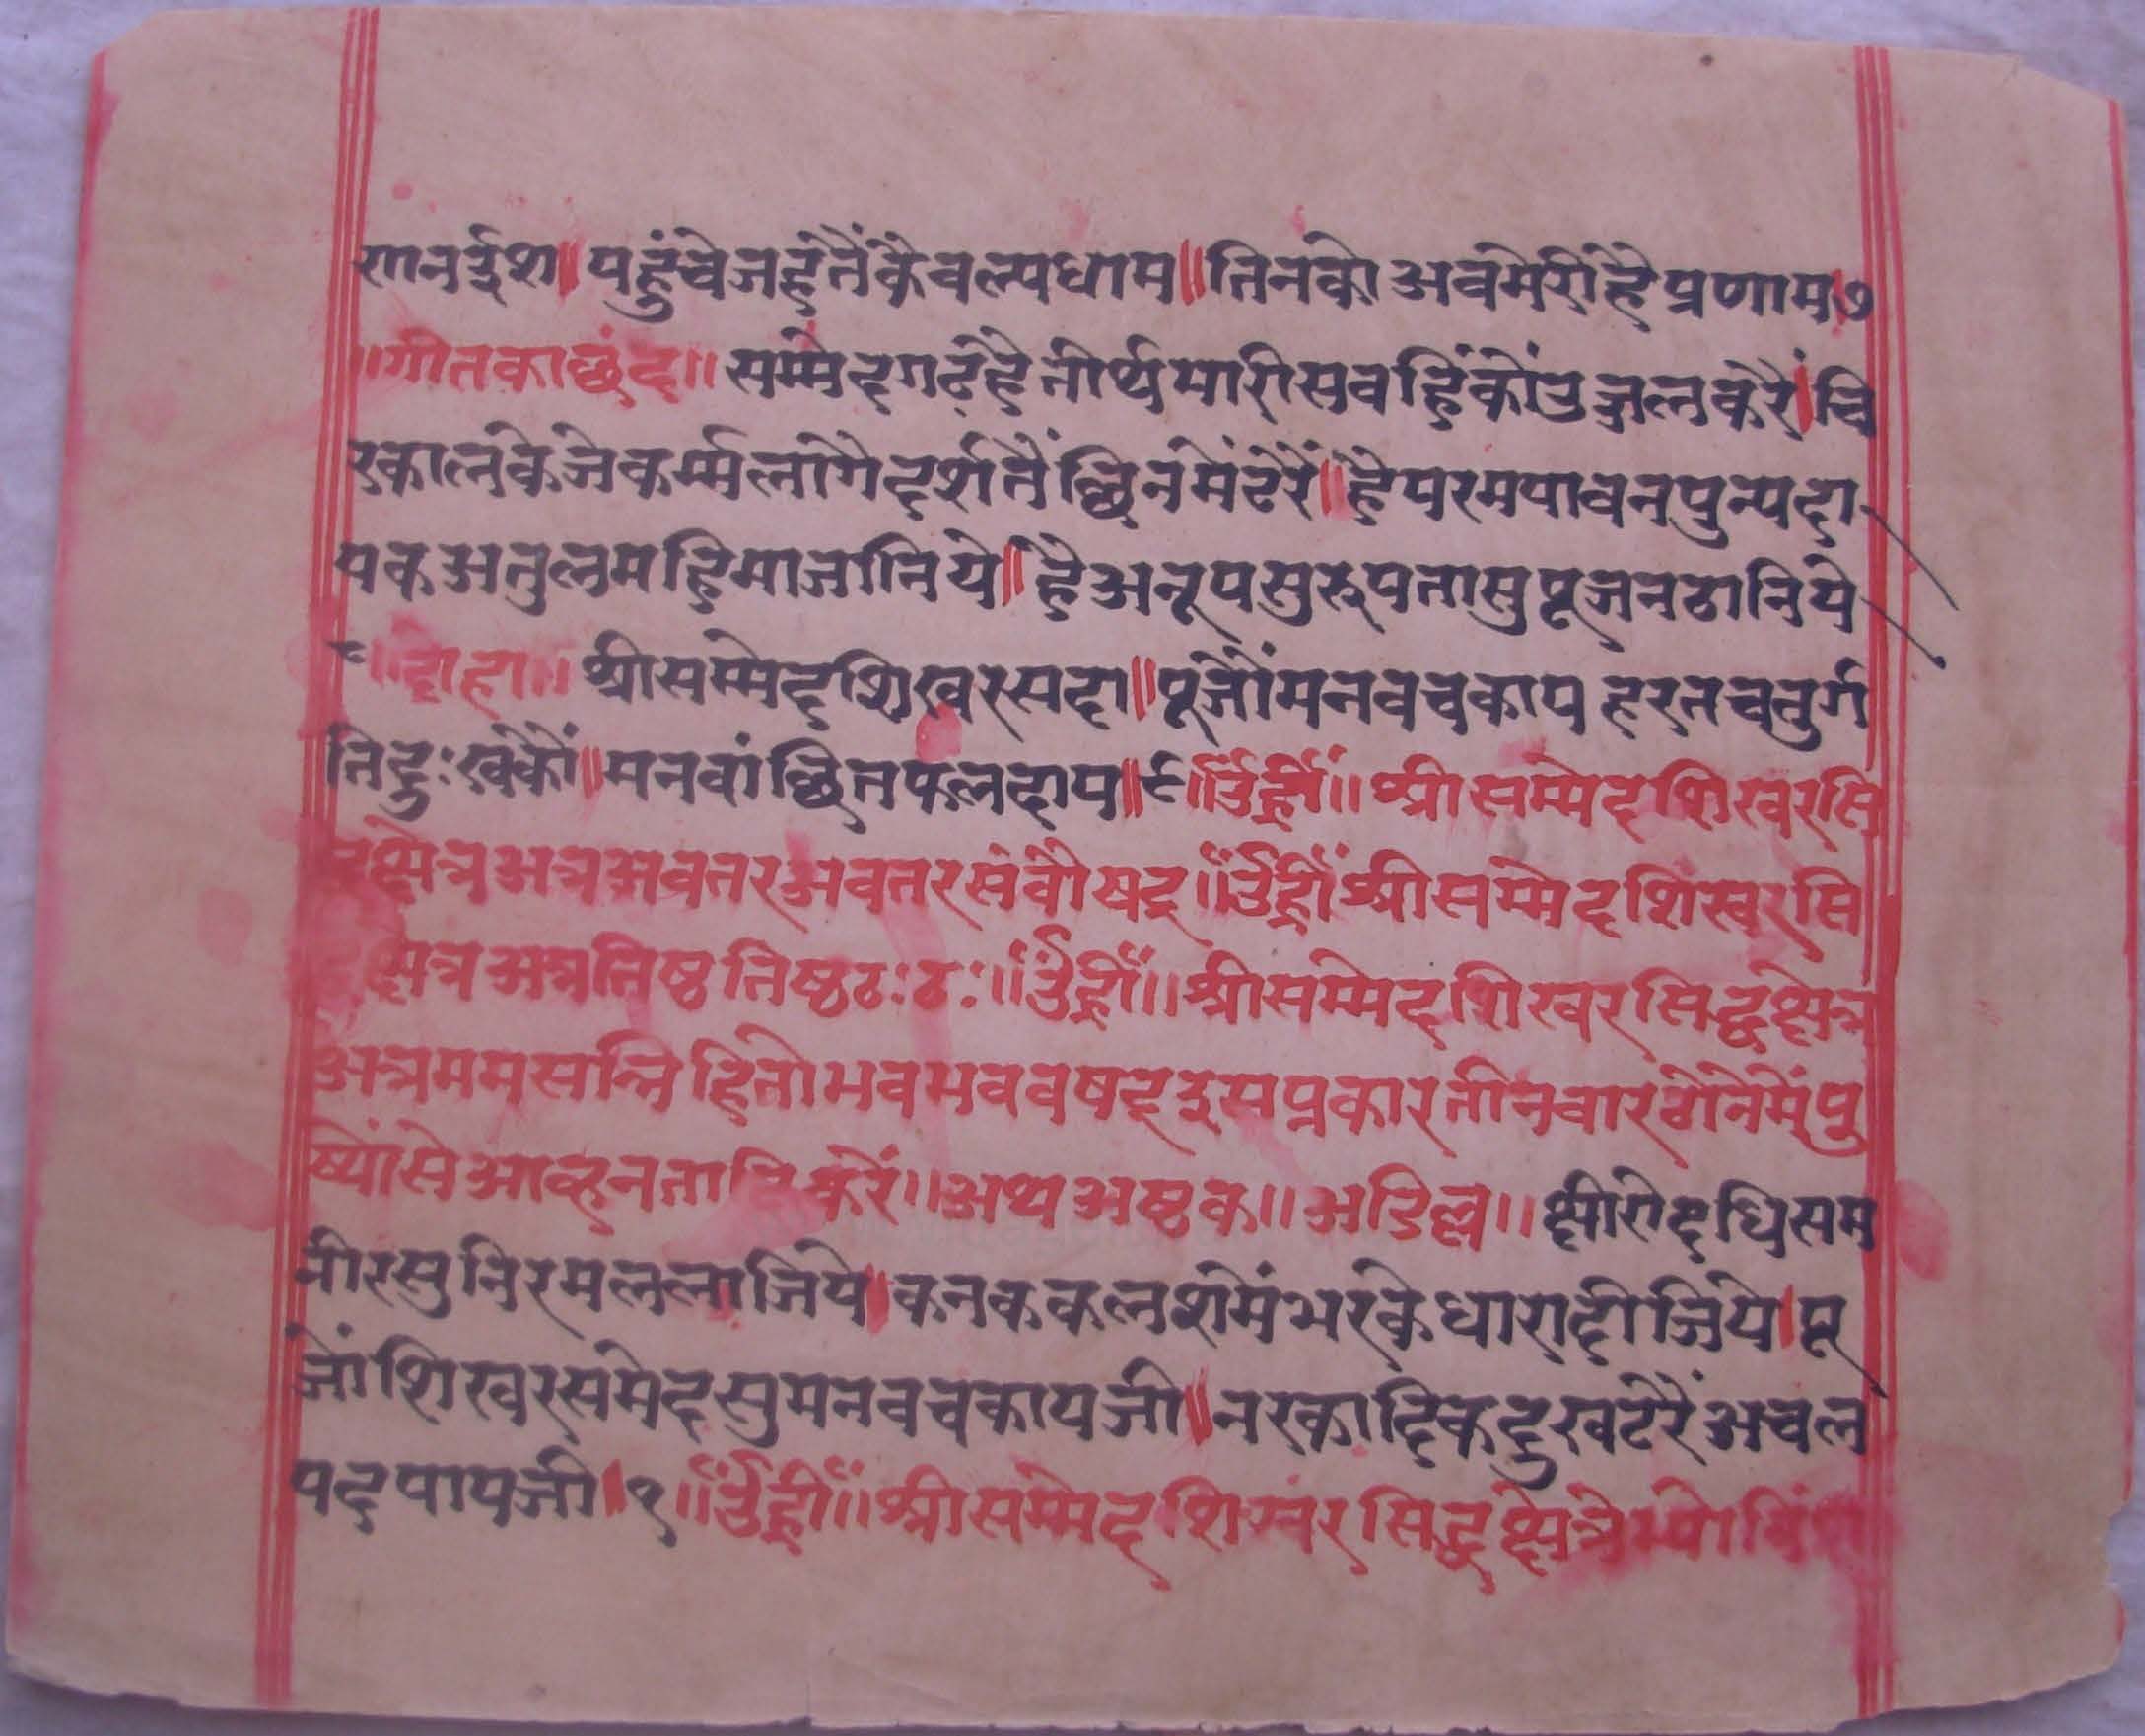 गानईश॥ पहुंचे जहंतैं कैवल्यधाम॥ तिनको अवमेरी है प्रणाम ७
॥गीतकाछंद॥ सम्मेदगढ़ है तीर्थभारी सवहिंकों उज्जलकरै। चि
रकालके जे कर्म्मलागे दर्शतैं छिनमें टरैं॥ है परमपावन पुन्यदा
यक अतुलमहिमा जानिये॥ है अनूपसुरूप तासु पूजन ठानिये
८॥दोहा॥ श्रीसम्मेदशिखरसदा॥ पूजौंमनवचकाय हरतचतुर्ग
तिदुःखकौं॥ मनवांछितफलदाय॥९॥ॐह्रीं॥ श्रीसम्मेदशिखरसि
द्धक्षेत्र अत्र अवतर अवतर संवौषट्॥ॐह्रीं श्रीसम्मेदशिखरसि
क्षेत्र अत्र तिष्ठ तिष्ठ ठः ठः॥ॐह्रीं॥ श्रीसम्मेदशिखरसिद्धक्षेत्र
अत्र मम सन्निहितो भव भव वषट् इसप्रकार तीनवार ठोनेमें पु
ष्पोंसे आव्हनना करैं॥ अथ अष्टक॥ अडिल्ल॥ क्षीरोदधिसम
नीरसु निरमल लाजिये॥ कनककलशमें भरके धारा दीजिये। पू
जों शिखरसमेद सुमनवचकायजी॥ नरकादिकदुख टरैं अचल
पद पायजी। १॥ॐह्रीं॥ श्रीसम्मेदशिखर सिद्धक्षेत्रेभ्यो